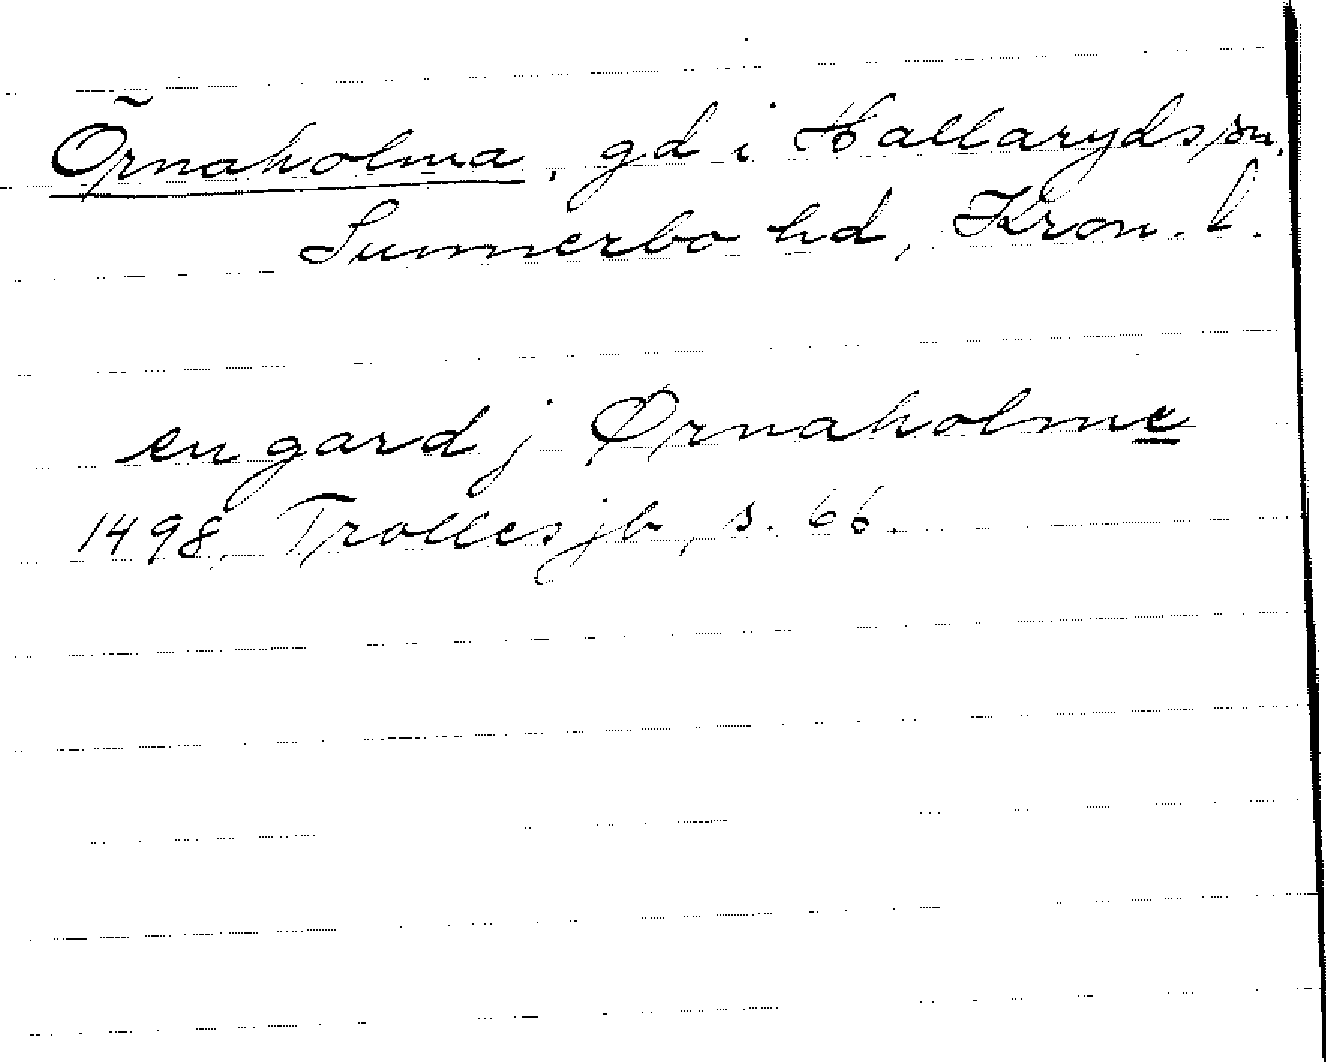 Örnaholma, gd i Hallaryds sn,
Sunnerbo hd, Kron. l.
en gard j Ørnaholme
1498. Trolles jb, s. 66.